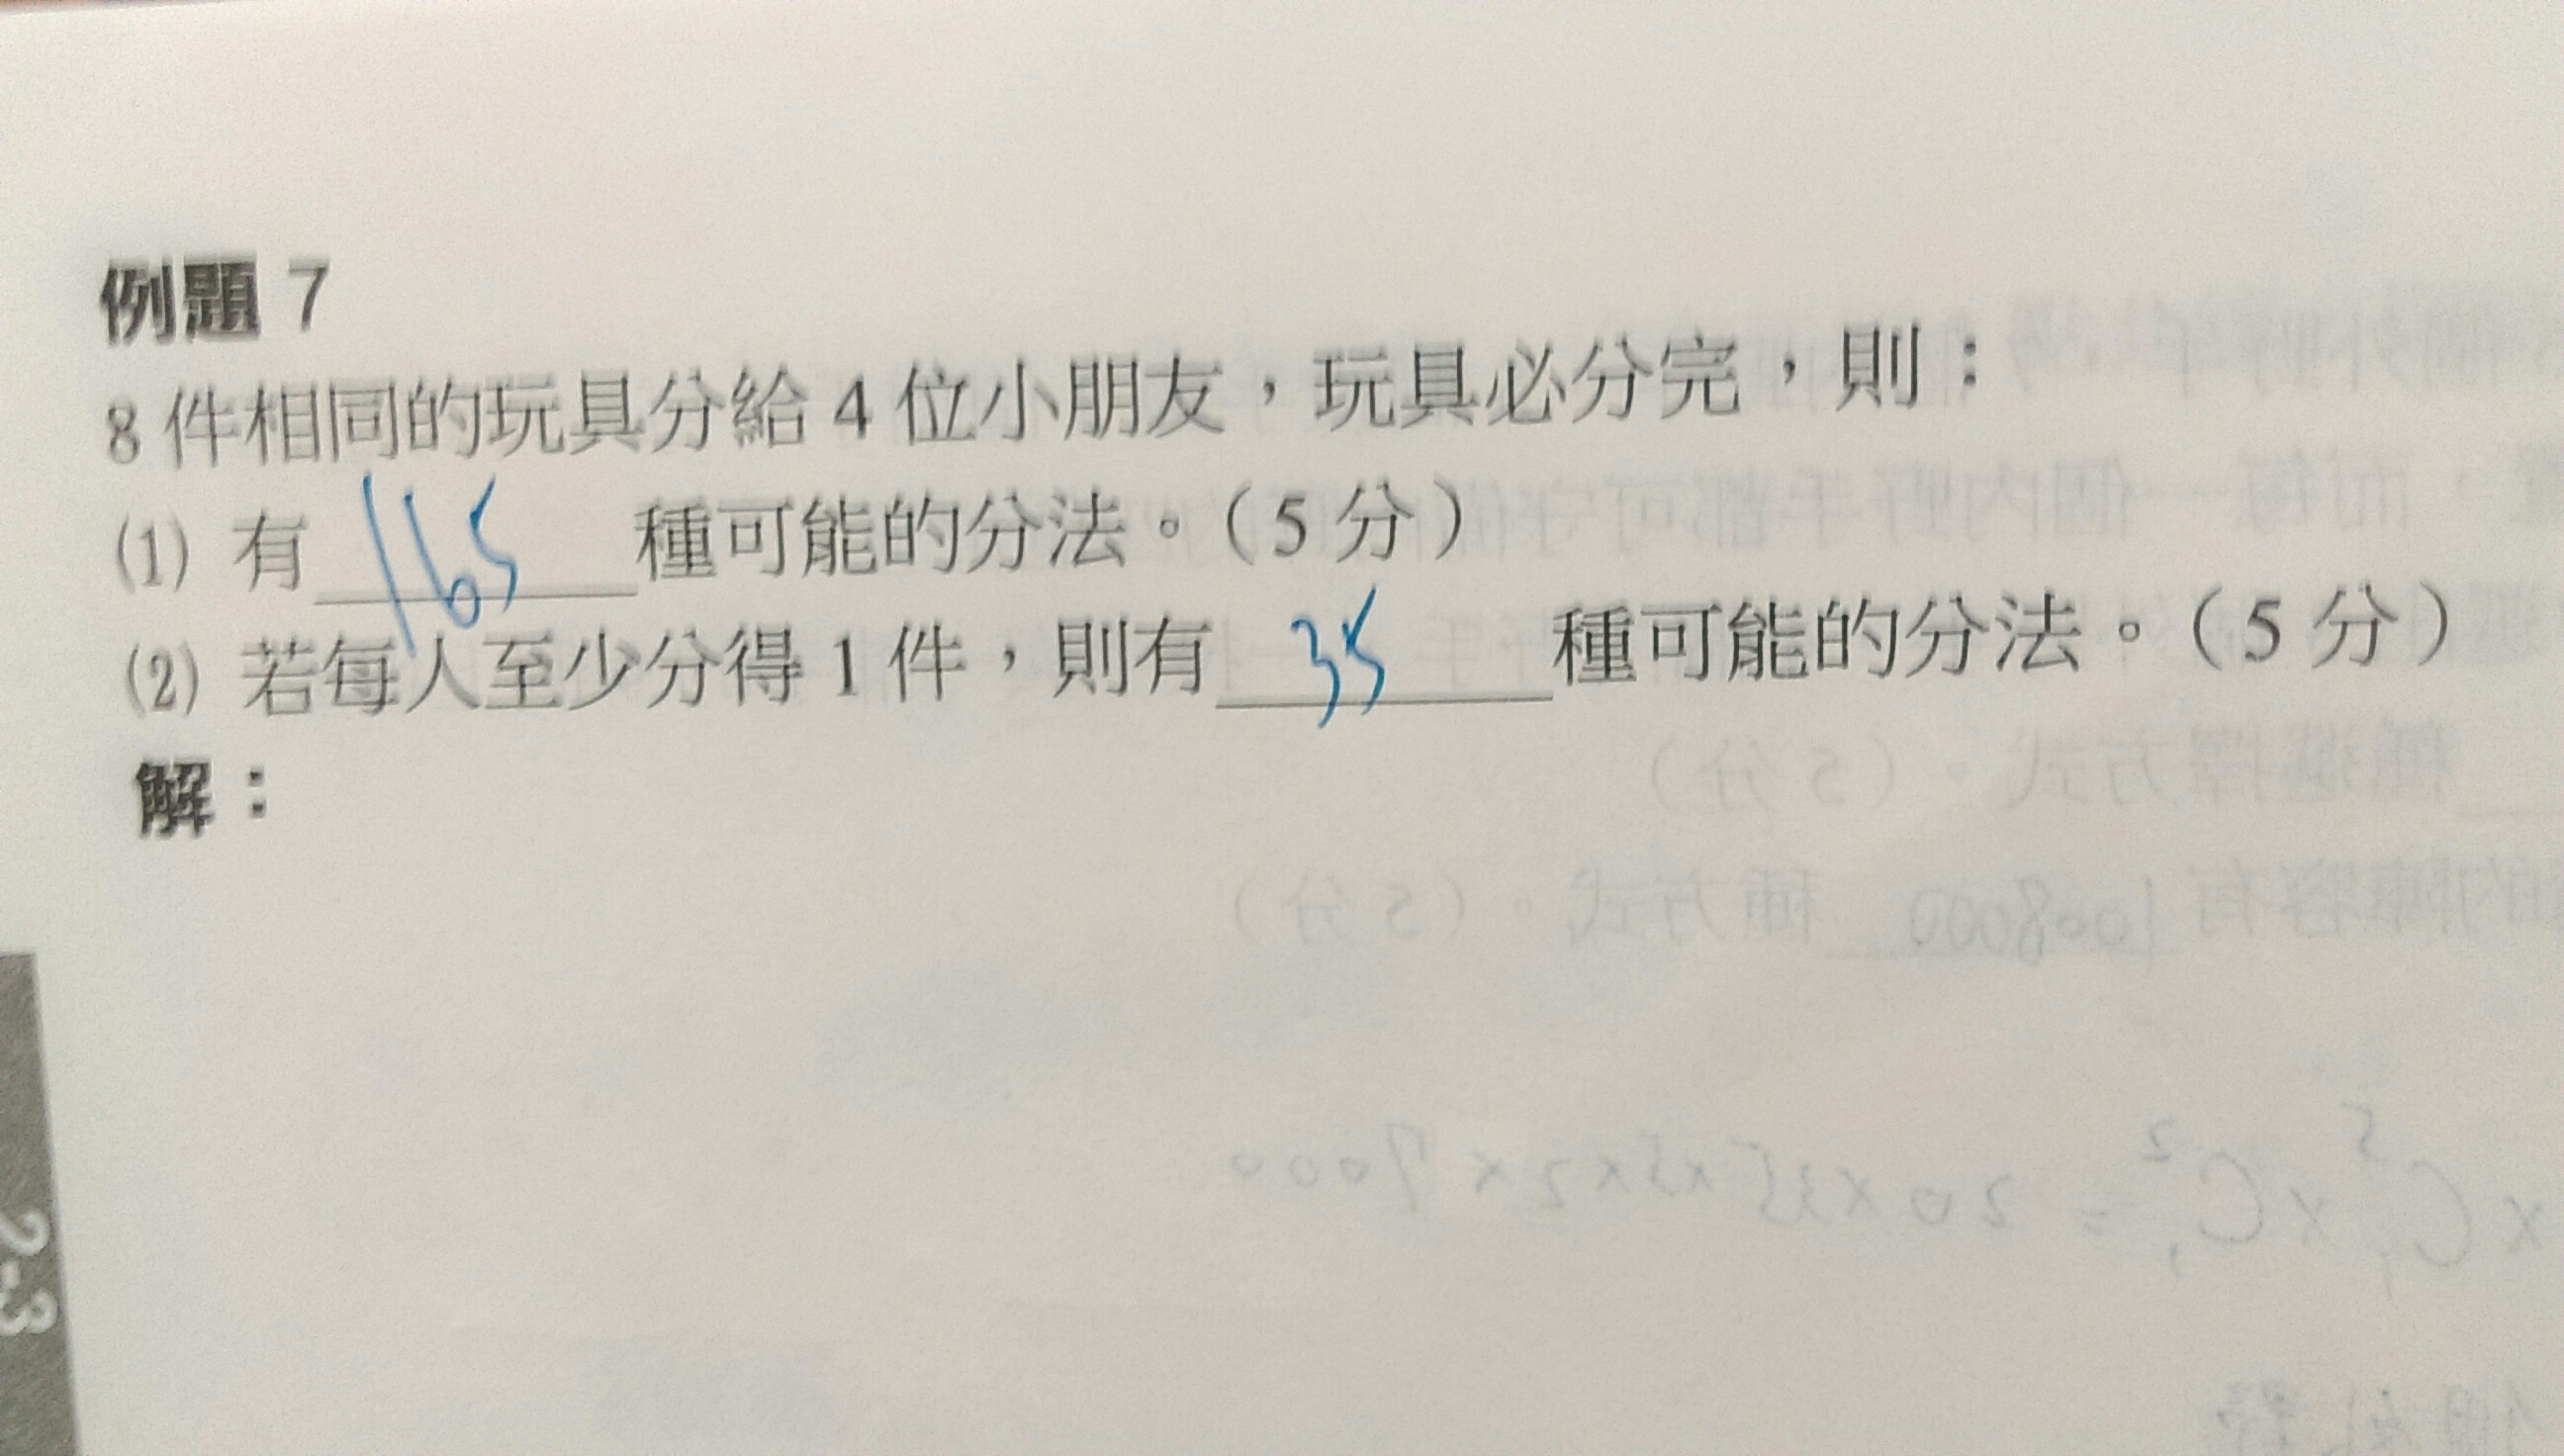 例題 7
8 件相同的玩具分給 4 位小朋友，玩具必分完，則：
(1) 有 165 種可能的分法。（5 分）
(2) 若每人至少分得 1 件，則有 35 種可能的分法。（5 分）
解：
2-3